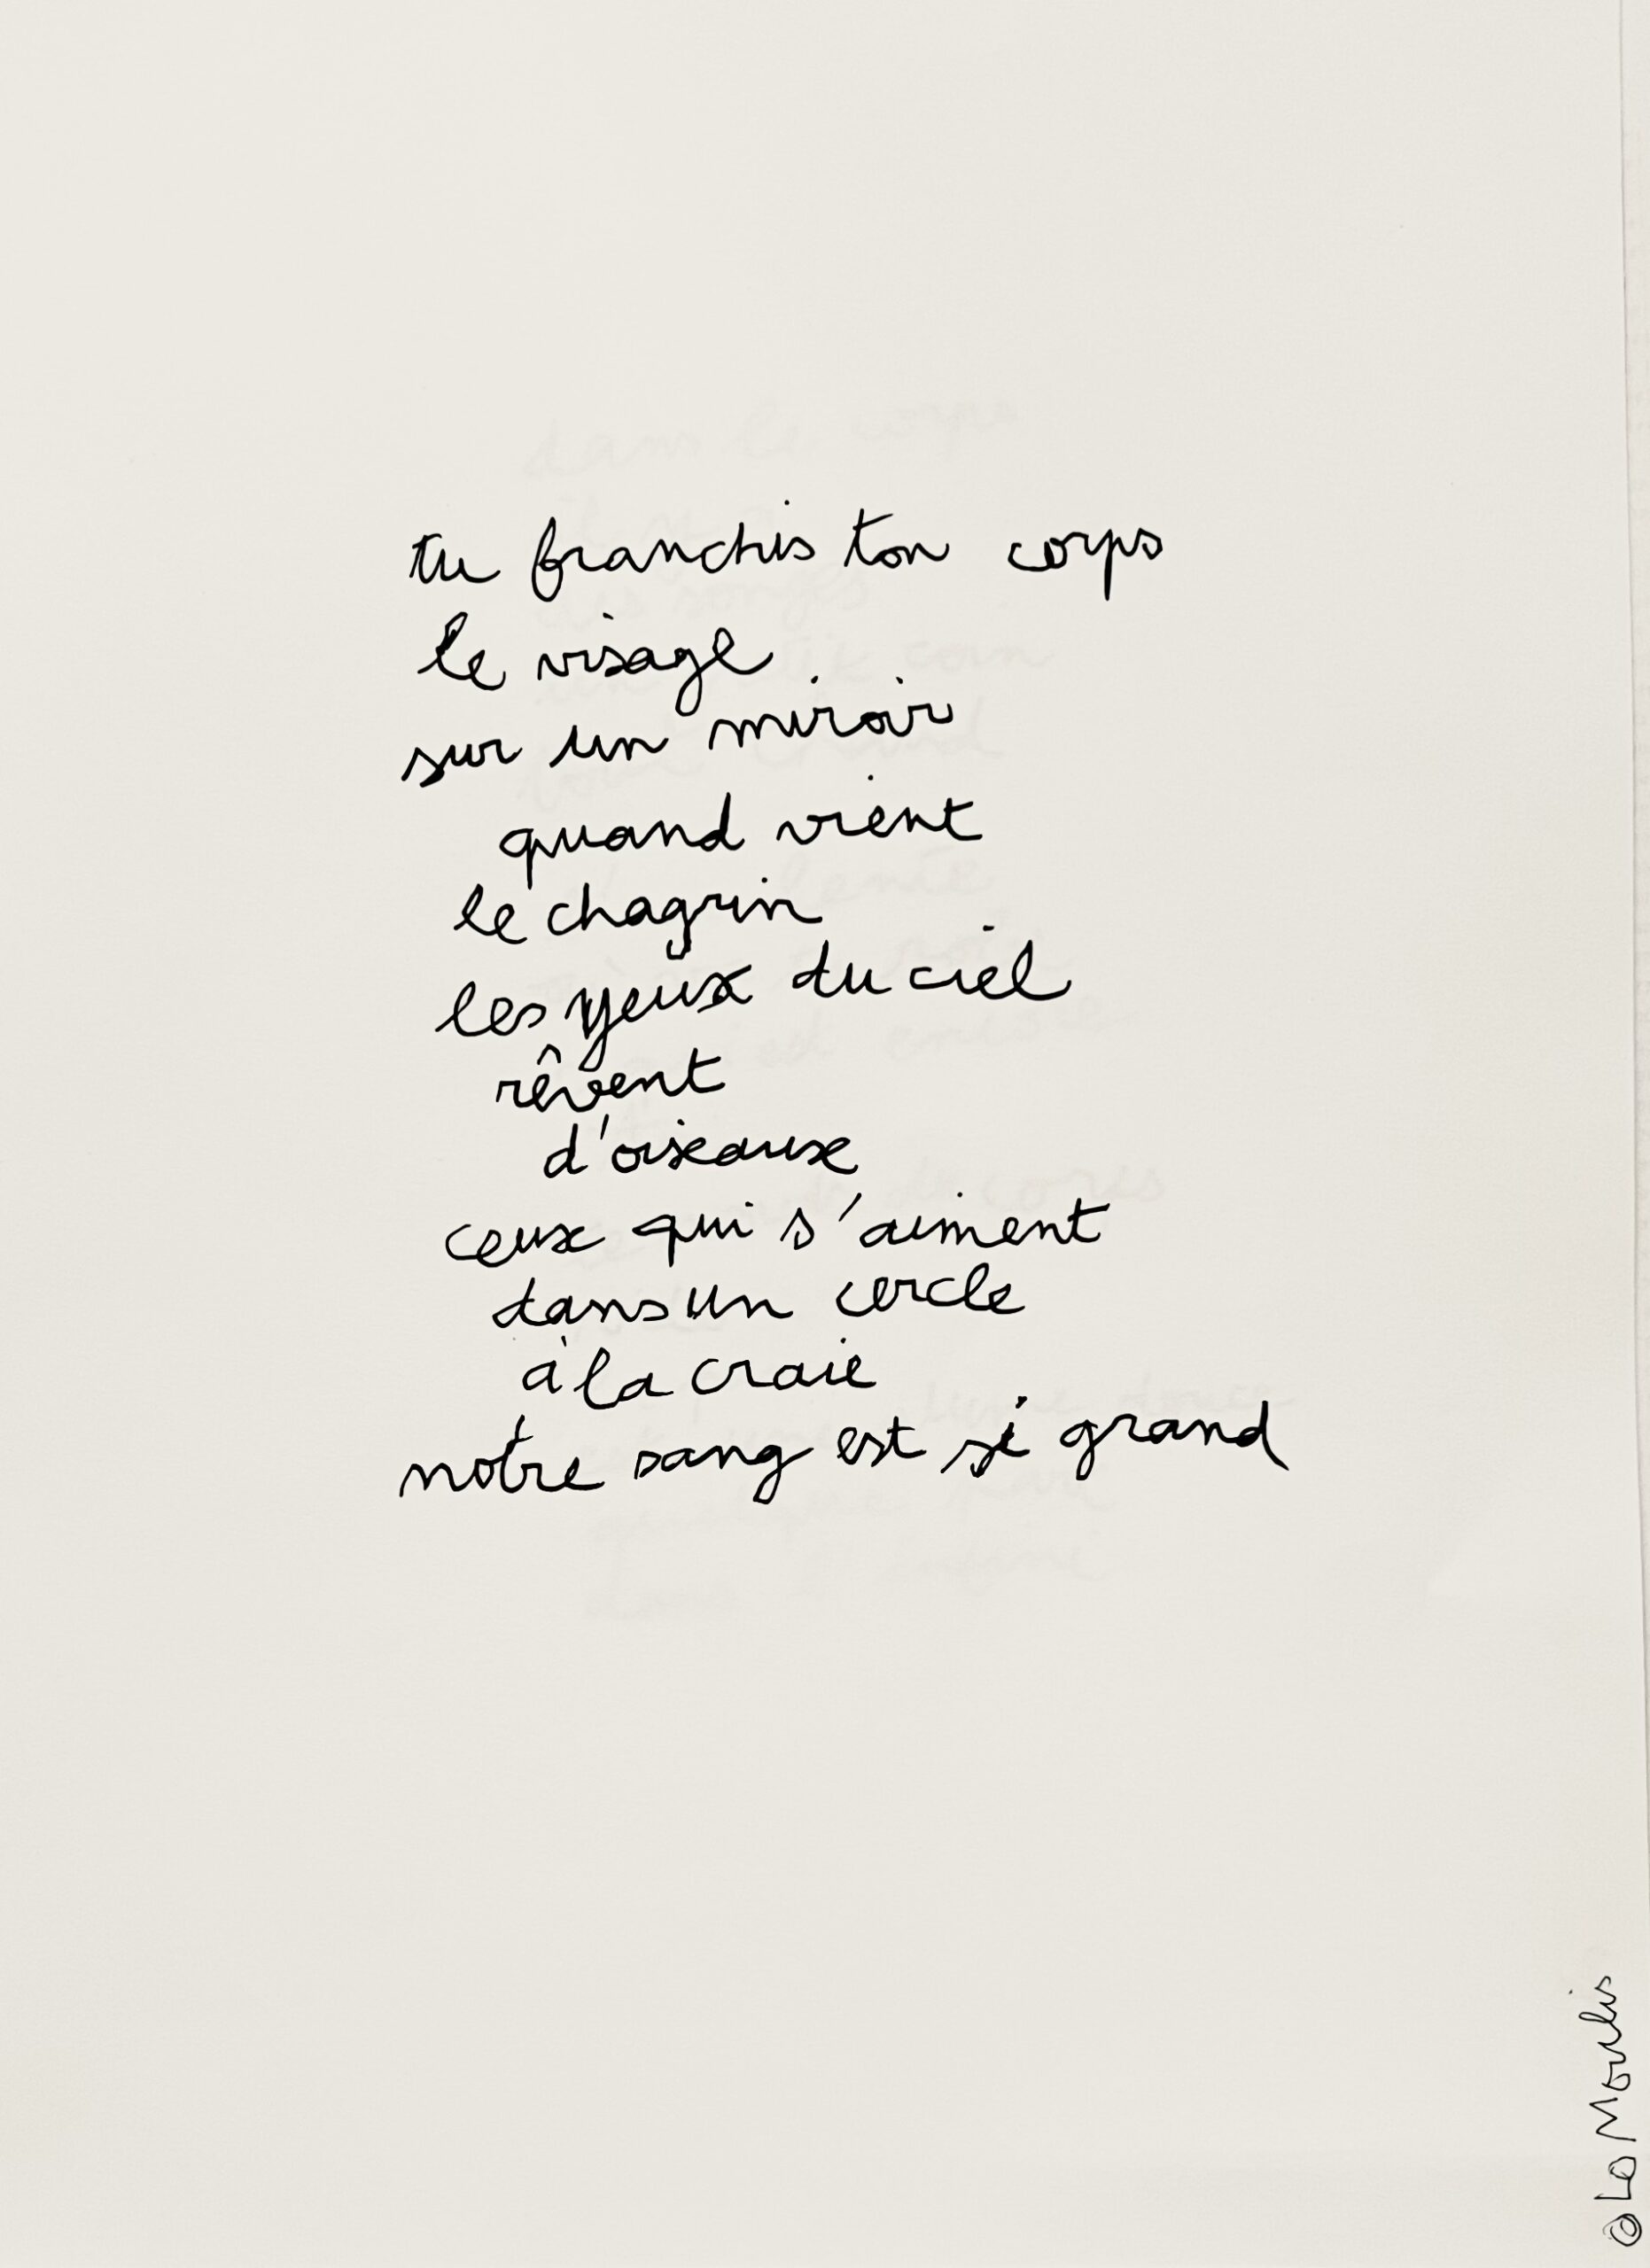 tu franchis ton corps
le visage
sur un miroir
quand vient
le chagrin
les yeux du ciel
rêvent
d'oiseaux
ceux qui s'aiment
dans un cercle
à la craie
notre sang est si grand
@ Lo Moulis